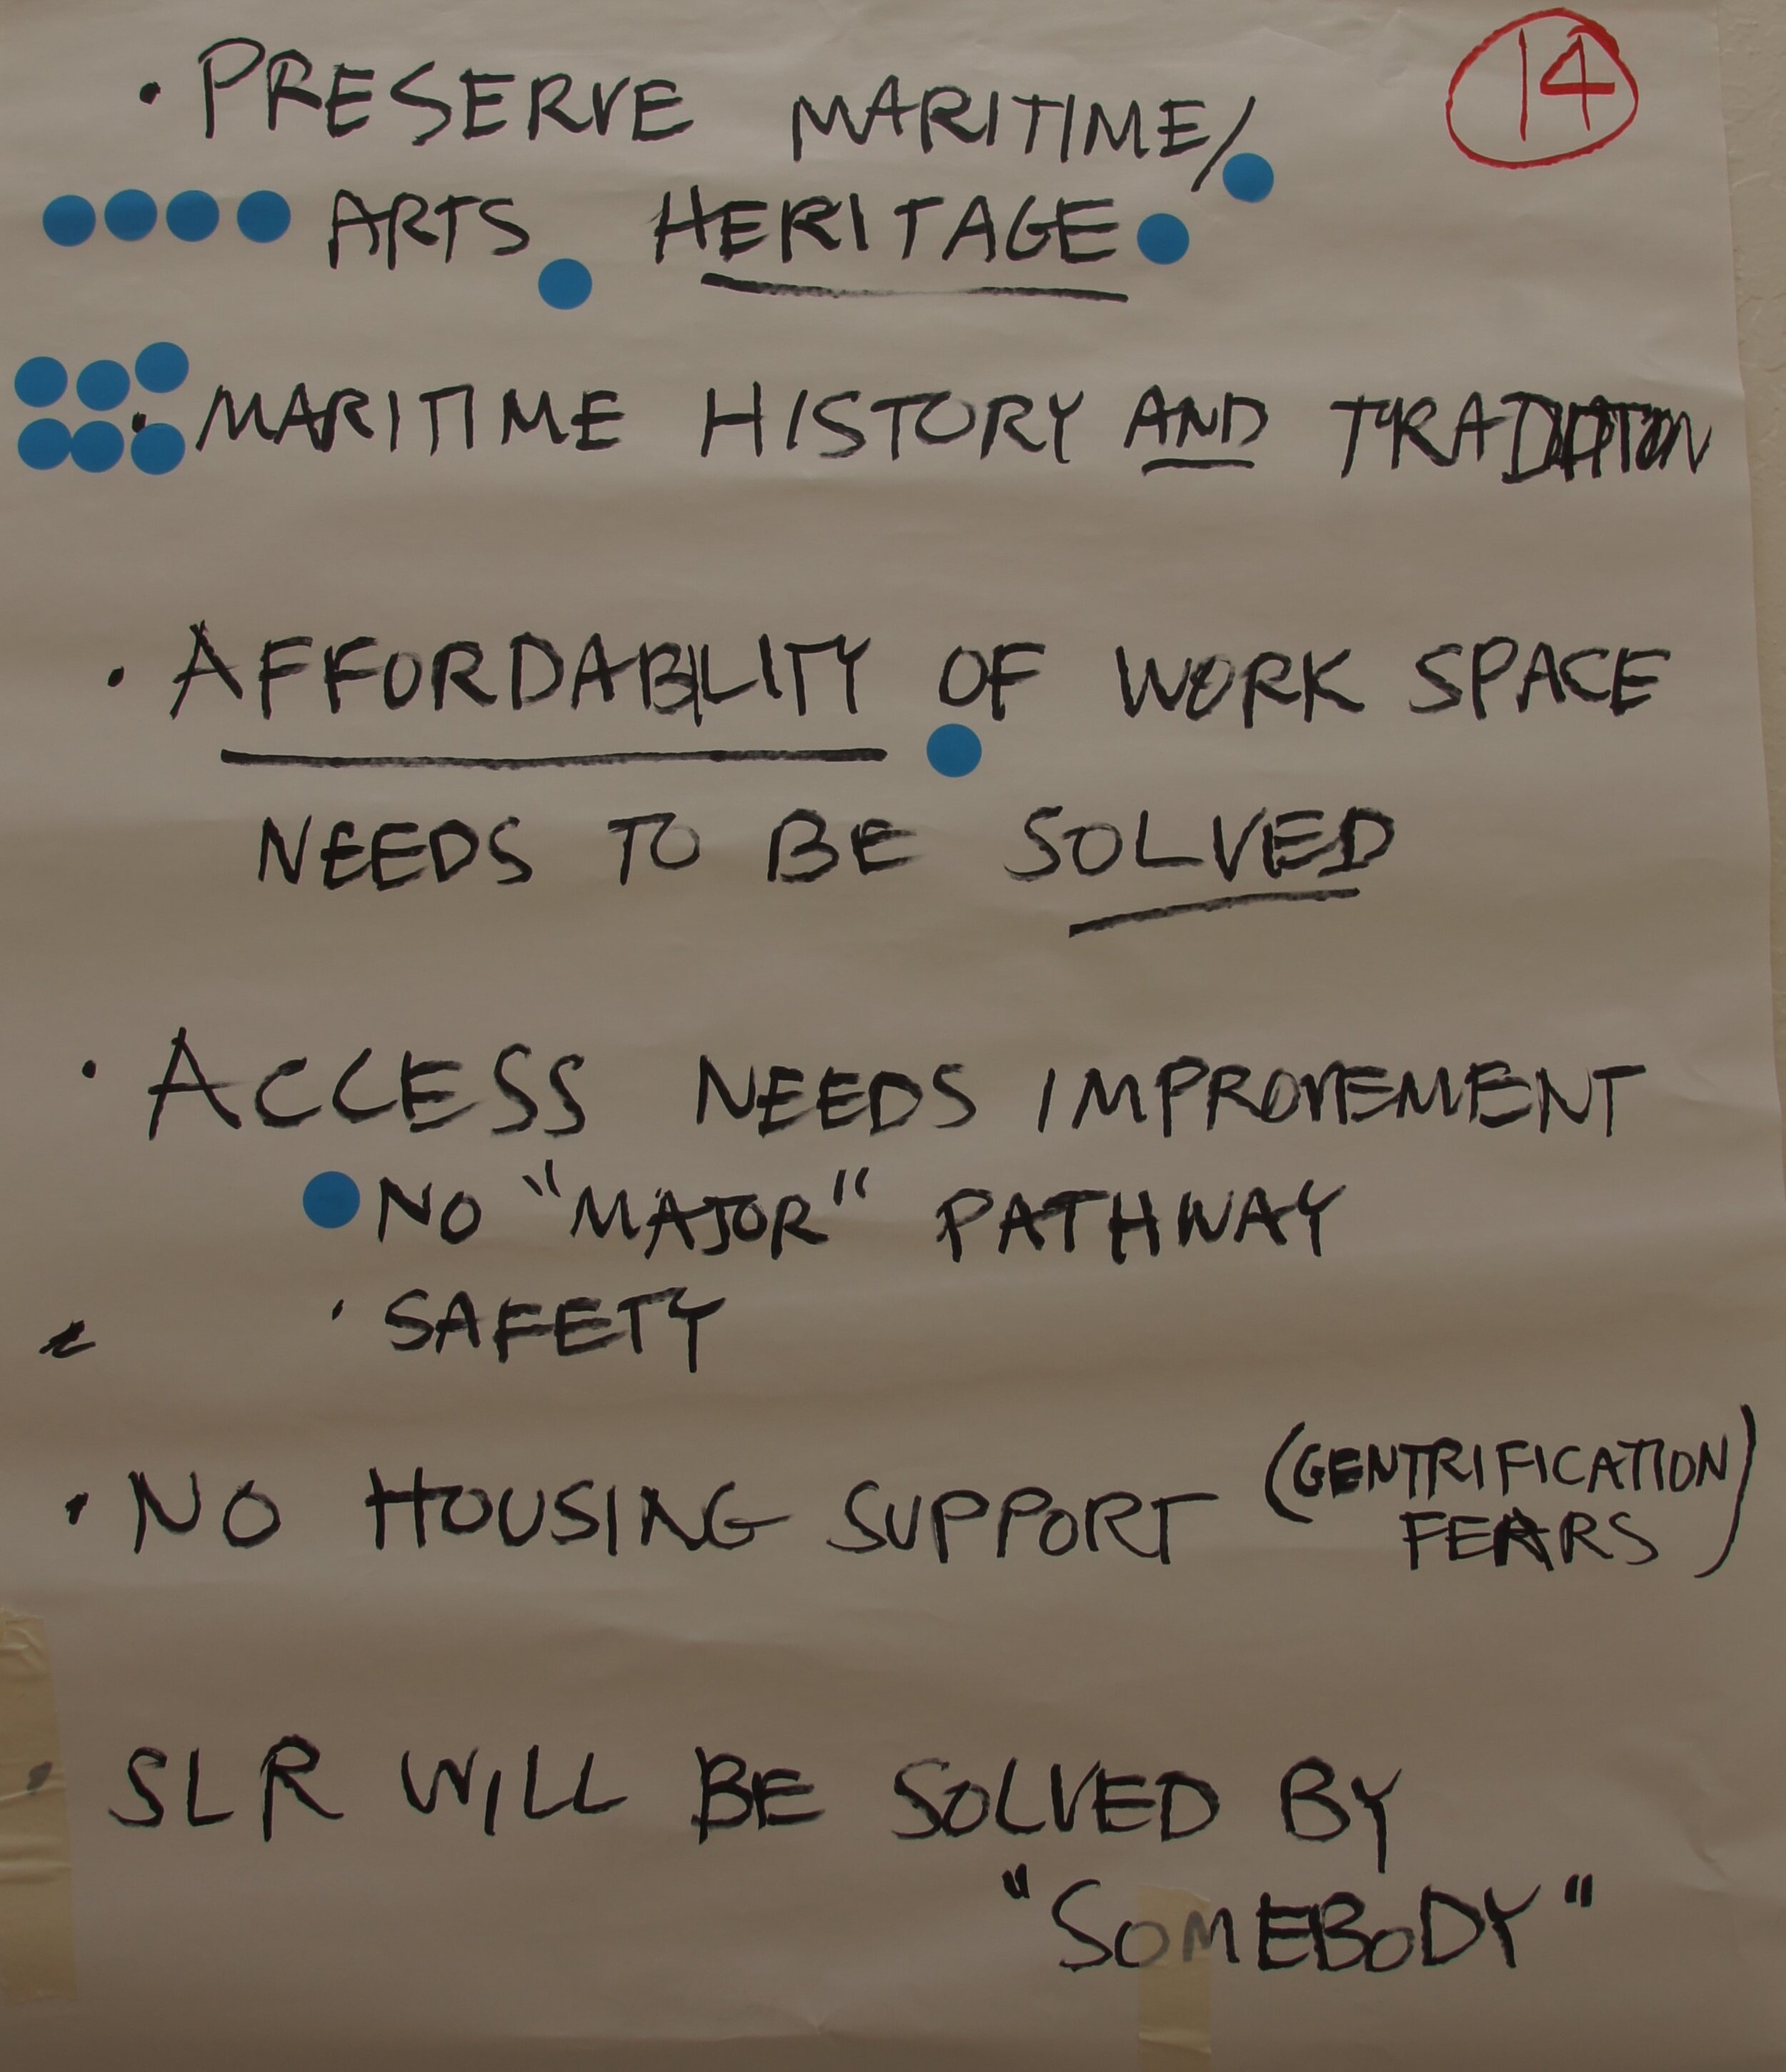 14
• PRESERVE MARITIME/
ARTS HERITAGE
• MARITIME HISTORY AND TRADITION
• AFFORDABILITY OF WORK SPACE
NEEDS TO BE SOLVED
• ACCESS NEEDS IMPROVEMENT
NO "MAJOR" PATHWAY
• SAFETY
• NO HOUSING SUPPORT (GENTRIFICATION
FEARS)
• SLR WILL BE SOLVED BY
"SOMEBODY"